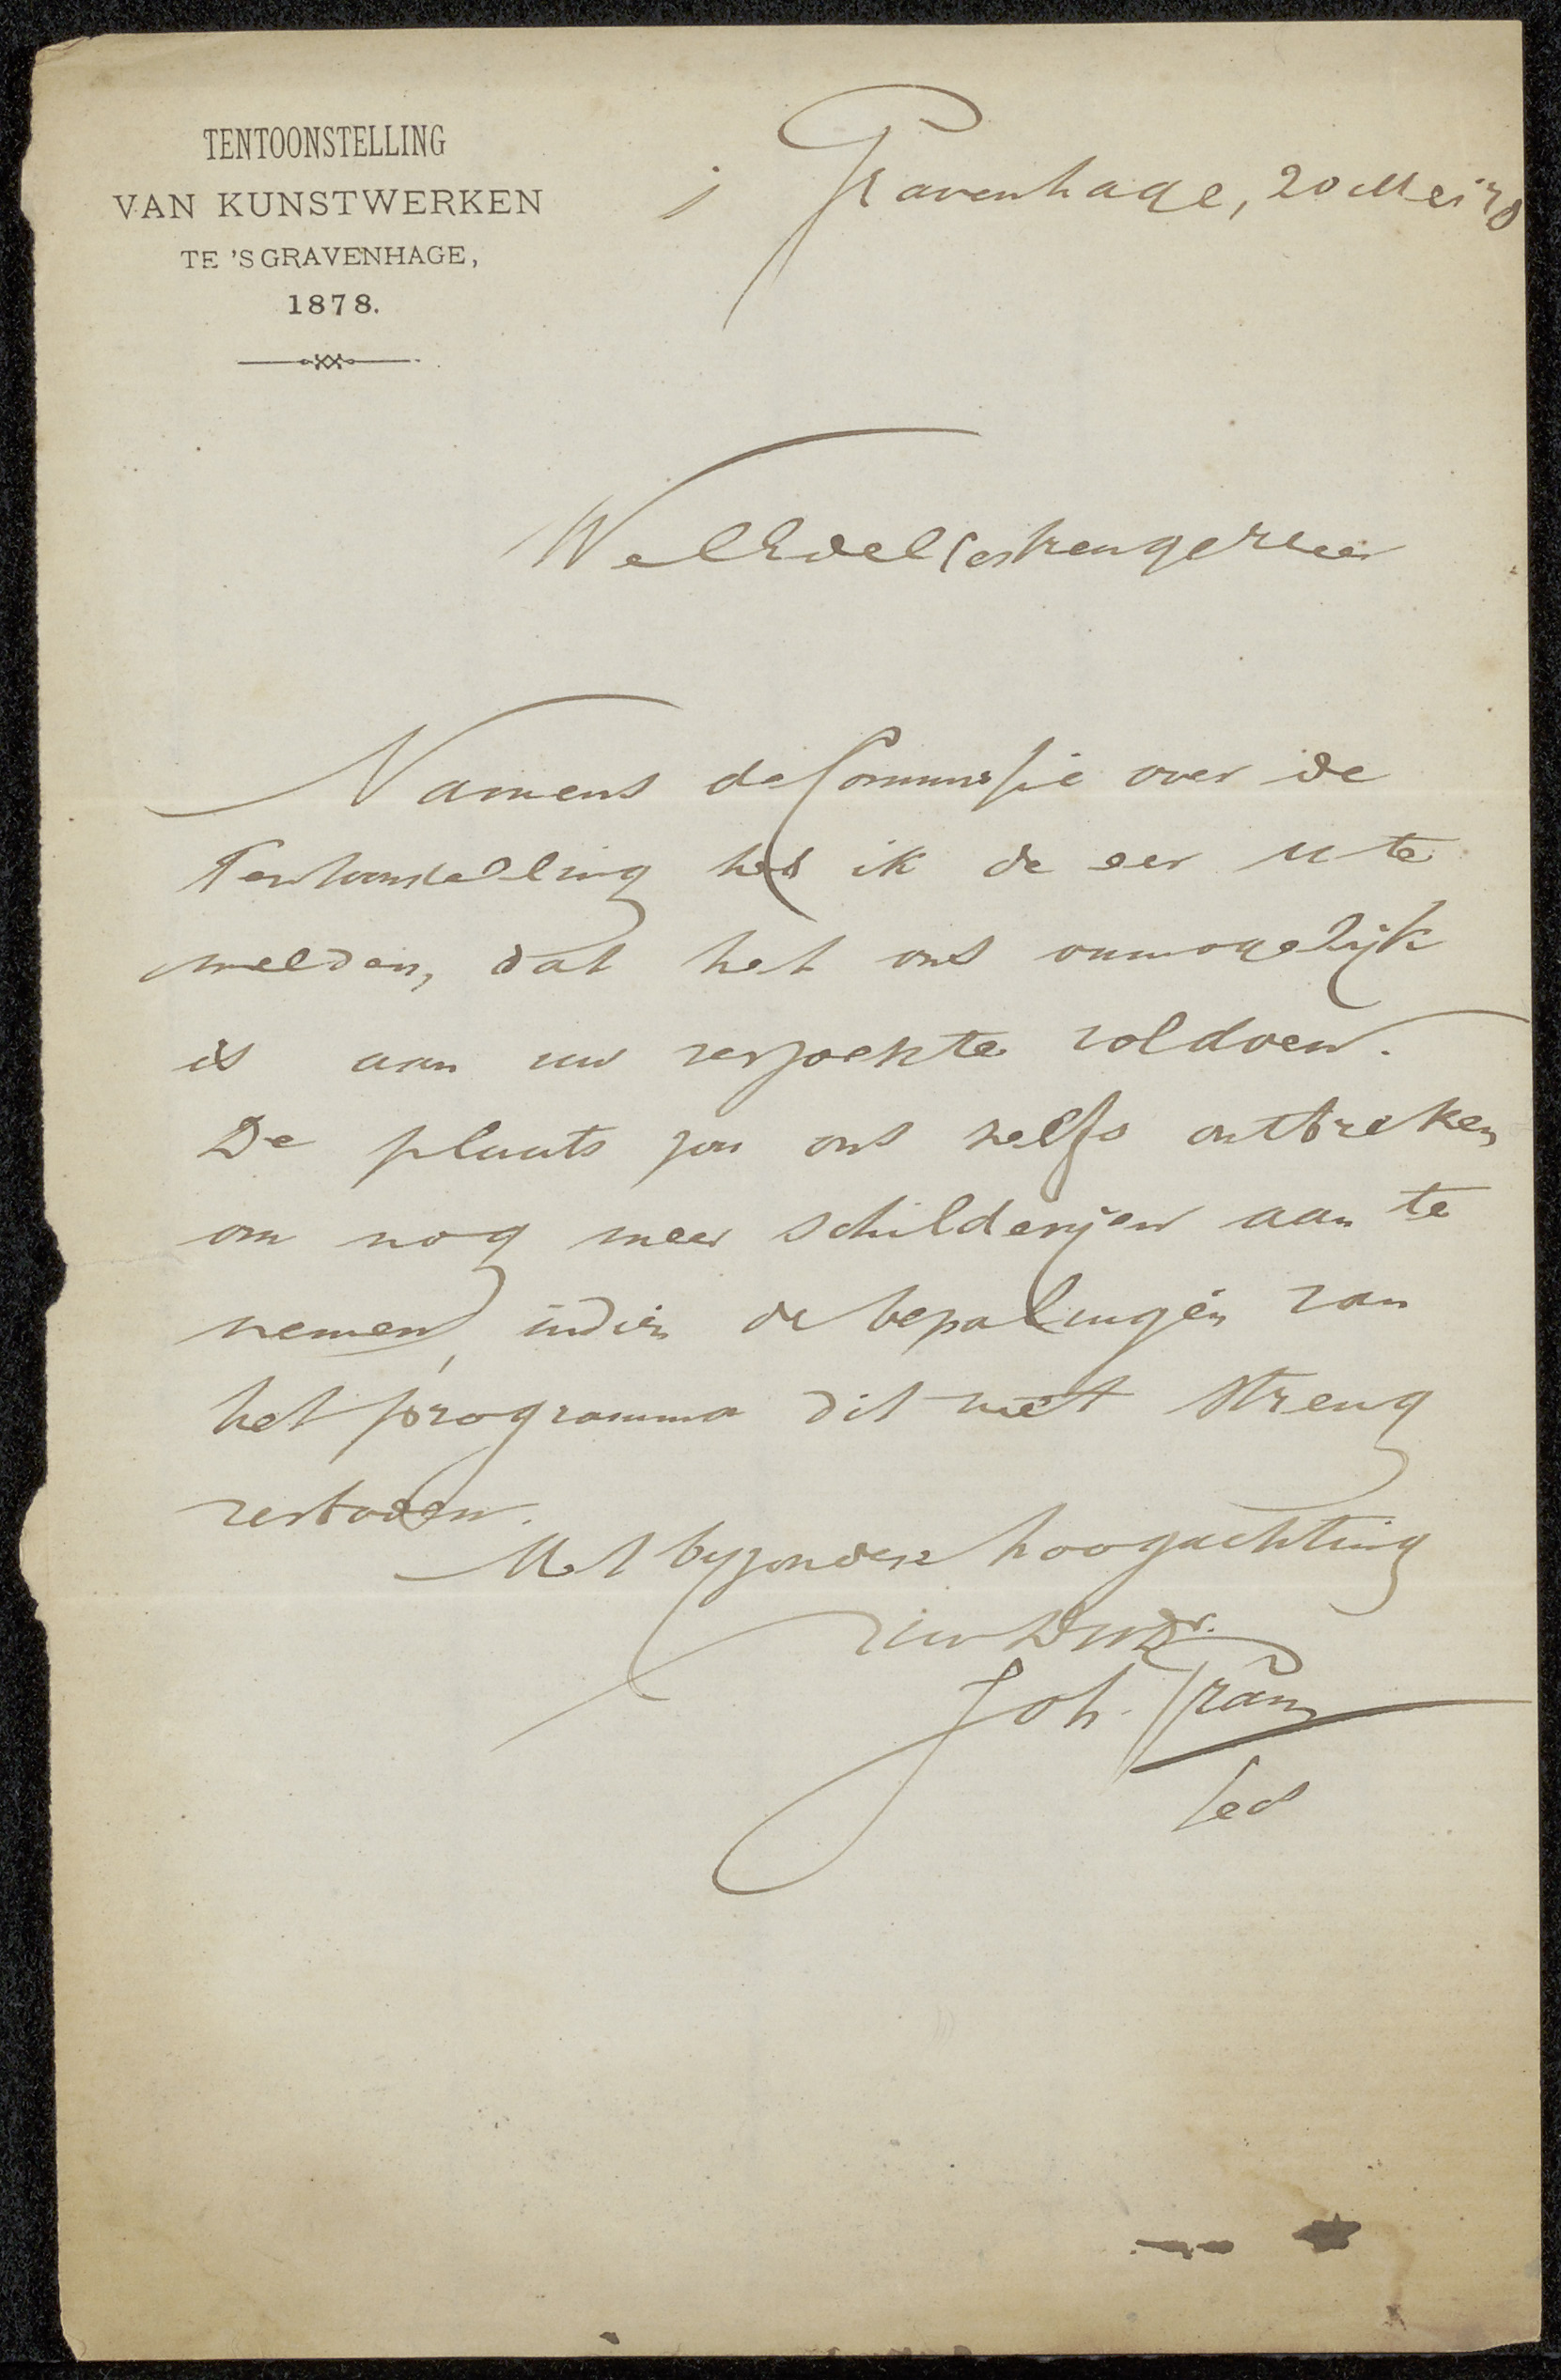 TENTOONSTELLING
VAN KUNSTWERKEN
TE 'SGRAVENHAGE,
1878.
s Gravenhage, 20 Mei '78
WelEdelGestrenge Heer
Namens de Commissie over de
Tentoonstelling heb ik de eer U te
melden, dat het ons onmogelijk
is aan uw verzoek te voldoen.
De plaats zou ons zelfs ontbreken
om nog meer schilderijen aan te
nemen, indien de bepalingen van
het programma dit niet streng
verboden.
Met byzondere hoogachting
Uw DWDr.
Joh. Gram
Sec